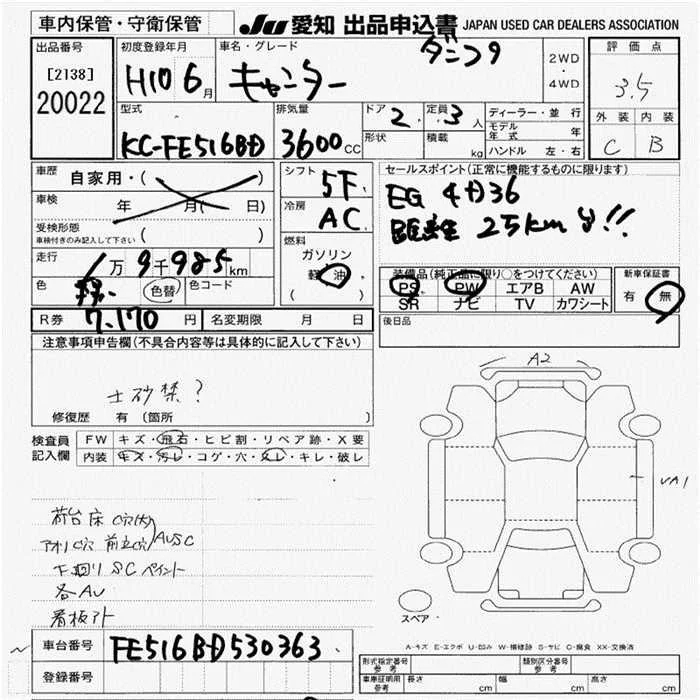 車内保管・守衛保管
JU 愛知 出品申込書 JAPAN USED CAR DEALERS ASSOCIATION
出品番号
[2138]
20022
初度登録年月
H10 6月
車名・グレード
ダンプ
キャンター
2WD
・
4WD
評価点
3.5
外装 内装
C B
型式
KC-FE516BD
排気量
3600cc
ドア 2
定員 3人
形状
積載 kg
ディーラー・並行
モデル年式 年
ハンドル 左・右
車歴
自家用・( )
車検 年 月( 日)
受検形態
車検付きのみ記入して下さい ( )
走行 1万9千985km
色
色替
色コード
シフト
5F
冷房
AC
燃料
ガソリン
軽油
( )
セールスポイント(正常に機能するものに限ります)
EG 4D36
距離 25km
装備品(純正品に限り○をつけてください)
PS PW エアB AW
SR ナビ TV カワシート
新車保証書
有 無
R券 7,170円
名変期限 月 日
後日品
注意事項申告欄(不具合内容等は具体的に記入して下さい)
土砂禁?
修復歴 有 (箇所 )
検査員記入欄
FW キズ・飛石・ヒビ割・リペア跡・X要
内装 キズ・汚レ・コゲ・穴・スレ・キレ・破レ
A2
VA1
荷台床 C穴(大)
アオリC穴 前立C穴 AUSC
下回り SCペイント
各AU
看板アト
スペア
A-キズ E-エクボ U-凹み W-補修跡 S-サビ C-腐食 XX-交換済
車台番号 FE516BD530363
登録番号
形式指定番号
参考
類別区分番号
参考
車庫証明用
参考
長さ cm
幅 cm
高さ cm